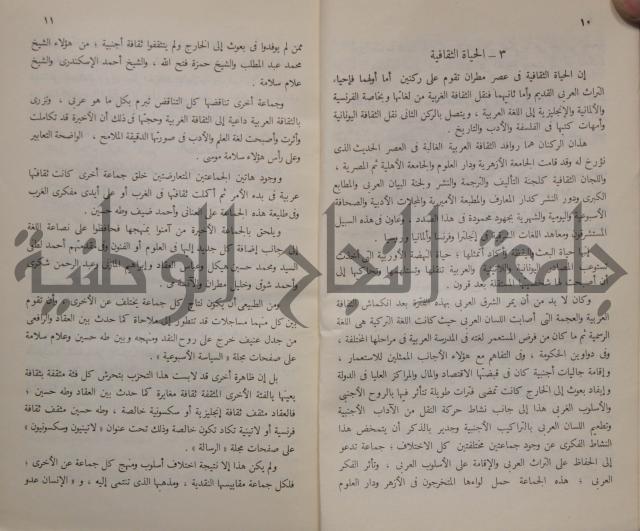 ١٠
٣ – الحياة الثقافية
إن الحياة الثقافية في عصر مطران تقوم على ركنين أما أولهما فإحياء
التراث العربي القديم وأما ثانيهما فنقل الثقافة الغربية من لغاتها وبخاصة الفرنسية
والألمانية والإنجليزية إلى اللغة العربية ، ويتصل بالركن الثاني نقل الثقافة اليونانية
وأمهات كتبها في الفلسفة والأدب والتاريخ .
هذان الركنان هما روافد الثقافة العربية الغالبة في العصر الحديث الذى
نؤرخ له وقد قامت الجامعة الأزهرية ودار العلوم والجامعة الأهلية ثم المصرية ،
واللجان الثقافية كلجنة التأليف والترجمة والنشر ولجنة البيان العربى والمطابع
الكبرى ودور النشر كدار المعارف والمطبعة الأميرية والمجلات الأدبية والصحافة
الأسبوعية واليومية والشهرية بجهود محمودة في هذا الصدد ، وعاون في هذه السبيل
المستشرقون ومعاهد اللغات الشرقية في إنجلترا وفرنسا وألمانيا وروسيا .
إنها حياة البعث واليقظة وأكاد أمثلها ؛ حياة النهضة الأوربية التى أخذت
تستوعب المصادر اليونانية واللاتينية والعربية تنقلها وتستلهمها وتحاكيها إلى
أن أصبحت لها شخصيتها المستقلة بعد قرون .
وكان لا بد من أن يمر الشرق العربى بهذه الفترة بعد انكماش الثقافة
العربية والعجمة التى أصابت اللسان العربى حيث كانت اللغة التركية هى اللغة
الرسمية ثم ما كان من فرض المستعمر لغته في المدرسة العربية في مراحلها المختلفة ،
وفى دواوين الحكومة ، وفى التفاهم مع هؤلاء الأجانب الممثلين للاستعمار ،
وإقامة جاليات أجنبية كان في قبضتها الاقتصاد والمال والمراكز العليا في الدولة
وإيفاد بعوث إلى الخارج كانت تمضى فترات طويلة تتأثر فيها بالروح الأجنبى
والأسلوب الغربى هذا إلى جانب نشاط حركة النقل من الآداب الأجنبية
وتطعيم اللسان العربى بالتراكيب الأجنبية وجدير بالذكر أن يتمخض هذا
النشاط الفكرى عن وجود جماعتين مختلفتين كل الاختلاف ؛ جماعة تدعو
إلى الحفاظ على التراث العربى والإقامة على الأسلوب العربى ، وتأثر الفكر
العربى ؛ هذه الجماعة حمل لواءها المتخرجون في الأزهر ودار العلوم
١١
ممن لم يوفدوا في بعوث إلى الخارج ولم يتثقفوا ثقافة أجنبية ؛ من هؤلاء الشيخ
محمد عبد المطلب والشيخ حمزة فتح الله ، والشيخ أحمد الإسكندرى والشيخ
علام سلامة .
وجماعة أخرى تناقضها كل التناقض تبرم بكل ما هو عربى ، وتزرى
بالثقافة العربية داعية إلى الثقافة الغربية وحجتها في ذلك أن الأخيرة قد تكاملت
وأثرت وأصبحت لغة العلم والأدب في صورتها الدقيقة الملامح ، الواضحة التعابير
وعلى رأس هؤلاء سلامة موسى .
وجود هاتين الجماعتين المتعارضتين خلق جماعة أخرى كانت ثقافتها
عربية في بدء الأمر ثم أكملت ثقافتها في الغرب أو على أيدى مفكرى الغرب
وفى طليعة هذه الجماعة على العنانى وأحمد ضيف وطه حسين .
ويلحق بالجماعة الأخيرة من آمنوا بمنهجها فحافظوا على نصاعة اللغة
إلى جانب إضافة كل جديد إليها في العلوم أو الفنون وفى مقدمتهم أحمد لطفى
السيد ومحمد حسين هيكل وعباس العقاد وإبراهيم المازنى وعبد الرحمن شكرى
وأحمد شوقى وخليل مطران
ومن الطبيعى أن يكون نتاج كل جماعة يختلف عن الأخرى وأن تقوم
بين كل منهما مساجلات قد تتطور إلى ملاحاة كما حدث بين العقاد والرافعى
من جدل عنيف خرج على روح النقد ومنهجه وبين طه حسين وعلام سلامة
على صفحات مجلة « السياسة الأسبوعية » .
بل إن ظاهرة أخرى قد لابست هذا التحزب بتحرش كل فئة مثقفة بثقافة
بعينها بالفئة الأخرى المثقفة ثقافة مغايرة كما حدث بين العقاد وطه حسين ؛
فالعقاد مثقف ثقافة إنجليزية أو سكسونية خالصة ، وطه حسين مثقف ثقافة
فرنسية أو لاتينية تكاد تكون خالصة وذلك تحت عنوان « لاتينيون وسكسونيون »
على صفحات مجلة « الرسالة » .
ولم يكن هذا إلا نتيجة اختلاف أسلوب ومنهج كل جماعة عن الأخرى ؛
فلكل جماعة مقاييسها النقدية ، ومذهبها الذى تنتمى إليه ، و « الإنسان عدو
جامعة النجاح الوطنية